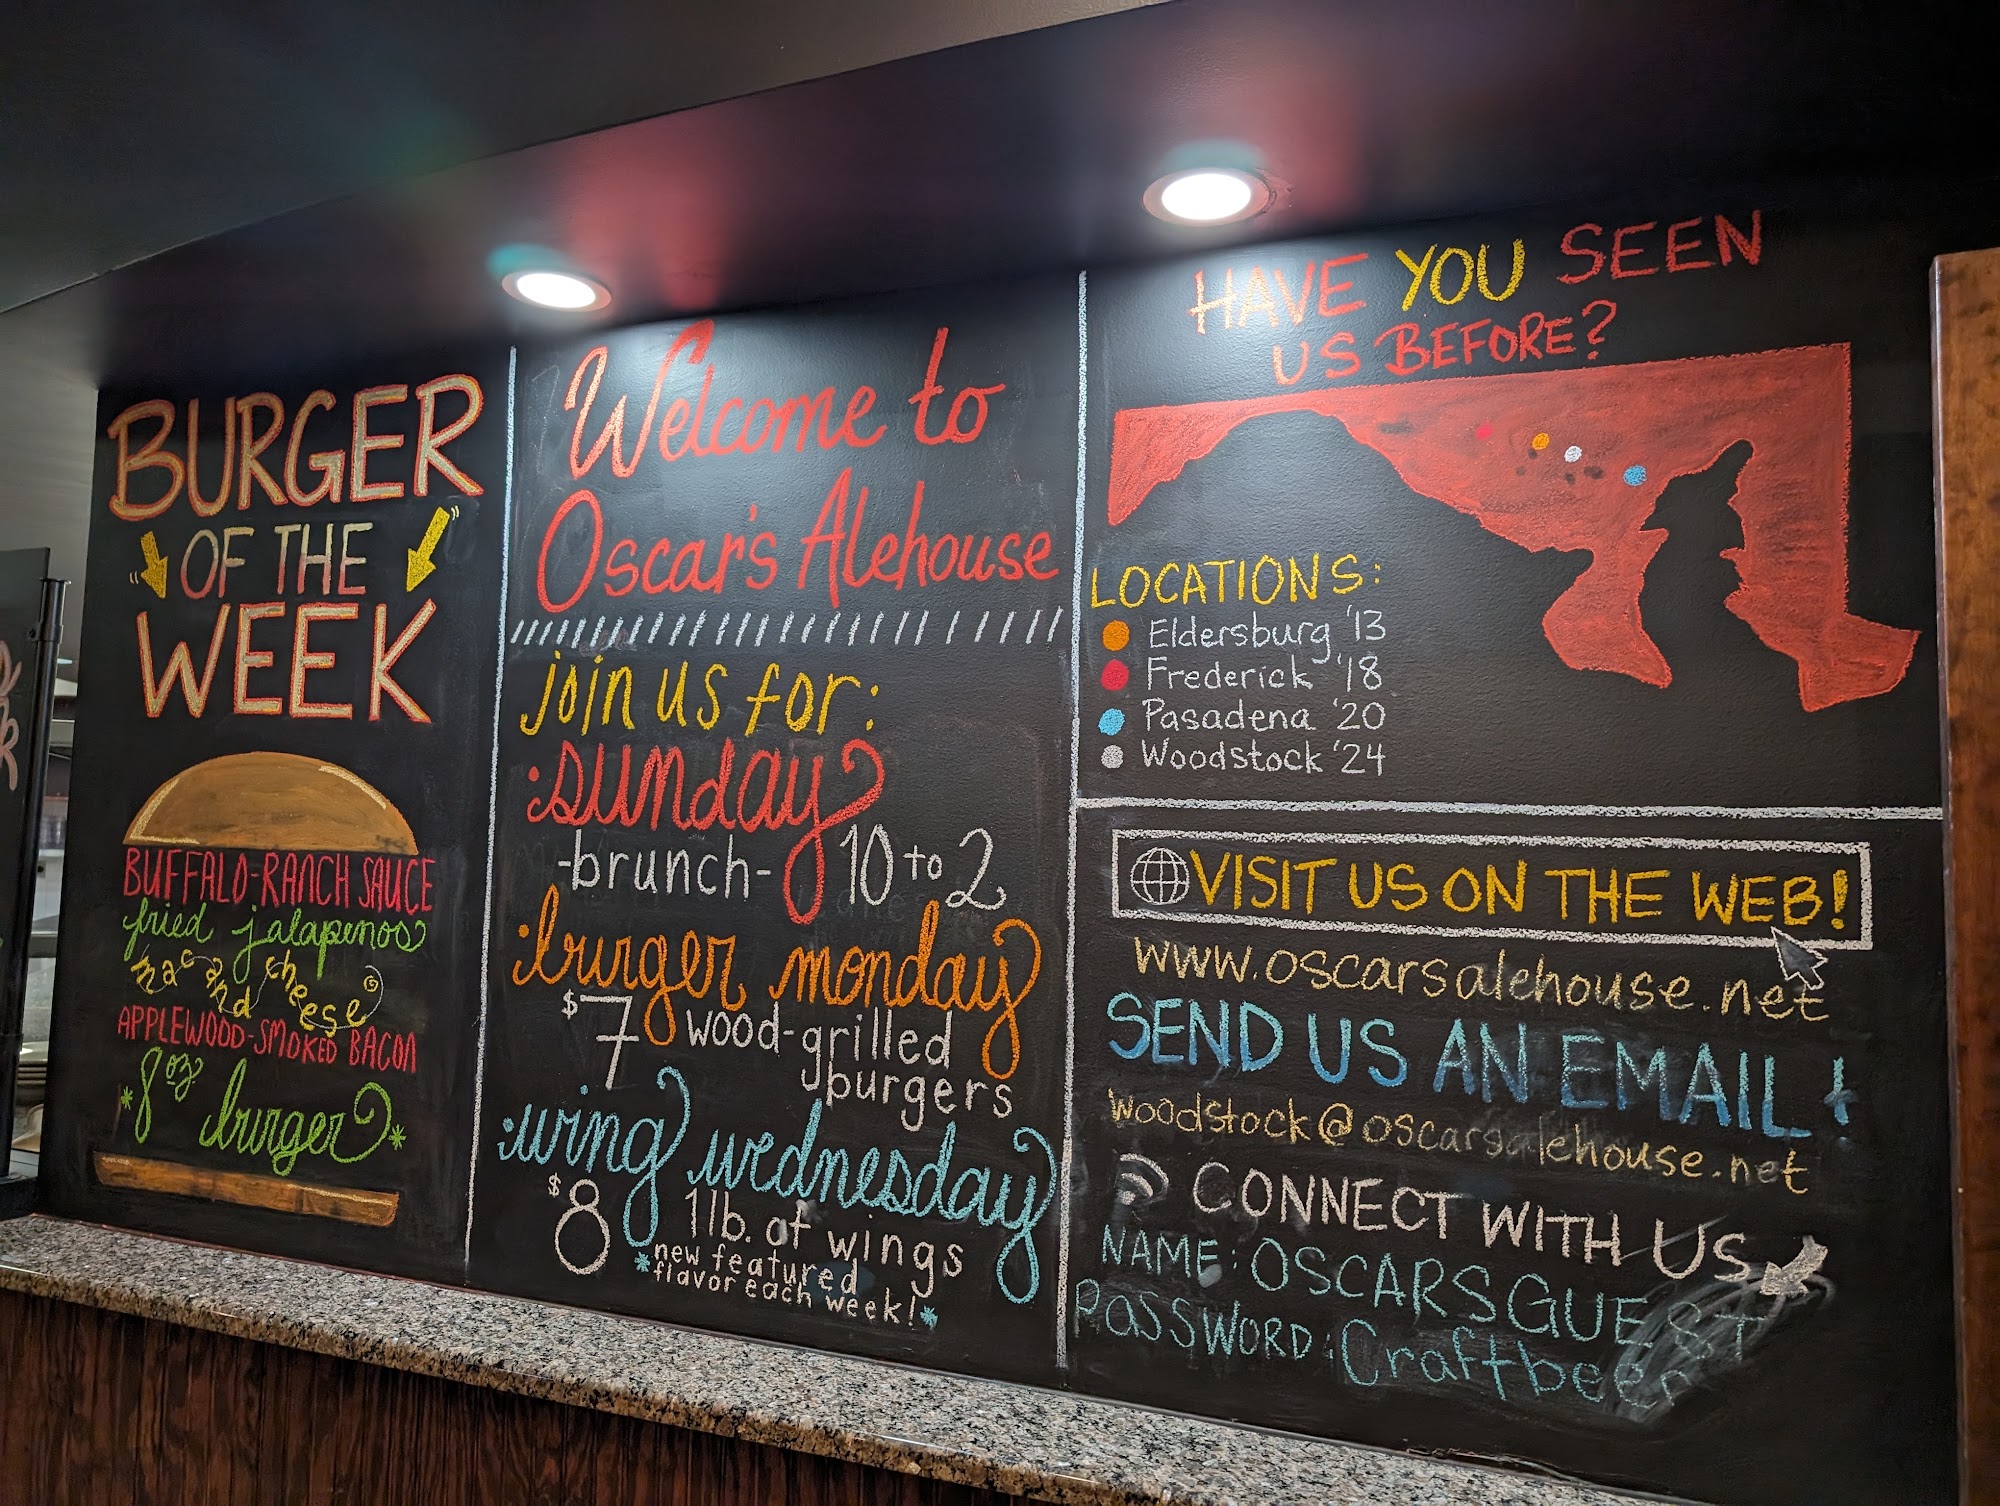 BURGER
OF THE
WEEK
BUFFALO-RANCH SAUCE
fried jalapenos
mac and cheese
APPLEWOOD-SMOKED BACON
*8oz burger*
Welcome to
Oscar's Alehouse
join us for:
:sunday
-brunch- 10 to 2
:burger monday
$7 wood-grilled
burgers
:wing wednesday
$8 1 lb. of wings
*new featured
flavor each week!*
HAVE YOU SEEN
US BEFORE?
LOCATIONS:
Eldersburg '13
Frederick '18
Pasadena '20
Woodstock '24
VISIT US ON THE WEB!
www.oscarsalehouse.net
SEND US AN EMAIL!
woodstock@oscarsalehouse.net
CONNECT WITH US
NAME: OSCARSGUEST
PASSWORD: Craftbeer